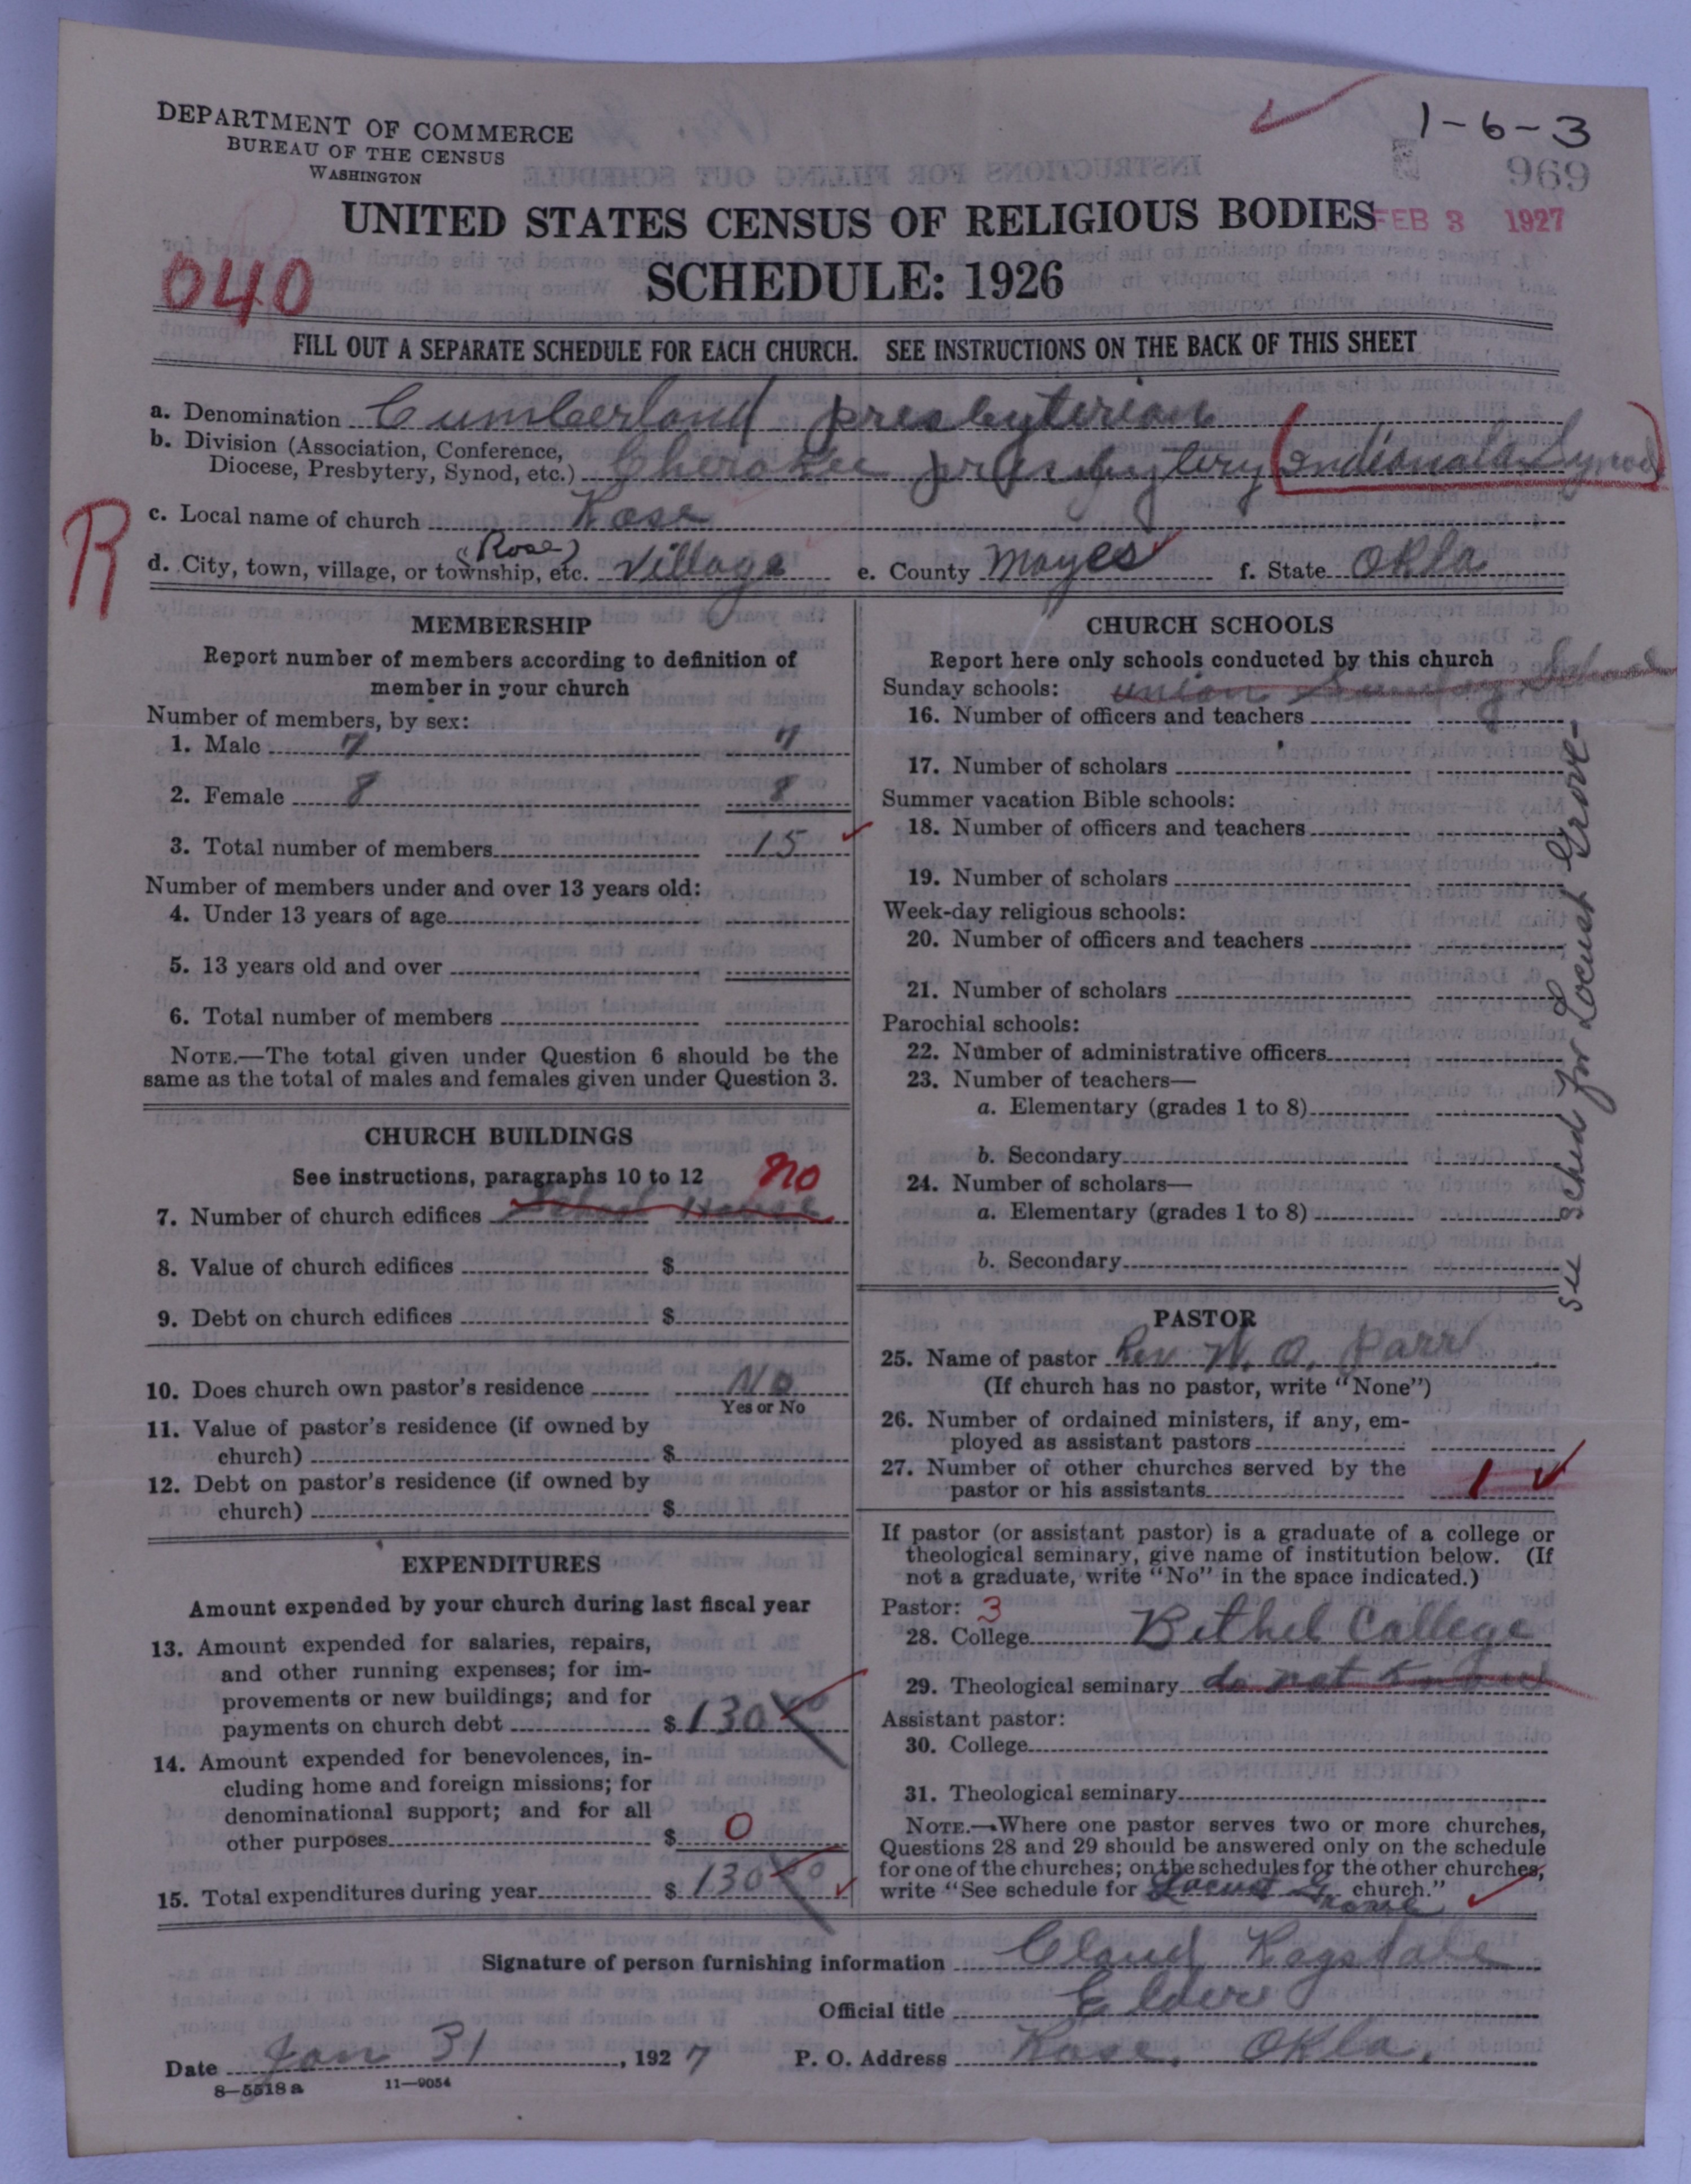 1-6-3
DEPARTMENT OF COMMERCE
BUREAU OF THE CENSUS
WASHINGTON
969
UNITED STATES CENSUS OF RELIGIOUS BODIES
FEB 3 1927
SCHEDULE: 1926
040
FILL OUT A SEPARATE SCHEDULE FOR EACH CHURCH. SEE INSTRUCTIONS ON THE BACK OF THIS SHEET
a. Denomination Cumberland presbyterian
b. Division (Association, Conference,
Diocese, Presbytery, Synod, etc.) Cherokee presbytery (Indianola Synod)
R
c. Local name of church Rose
(Rose)
d. City, town, village, or township, etc. Village e. County Mayes f. State Okla
MEMBERSHIP
Report number of members according to definition of
member in your church
Number of members, by sex:
1. Male 7 7
2. Female 8 8
3. Total number of members 15
Number of members under and over 13 years old:
4. Under 13 years of age
5. 13 years old and over
6. Total number of members
NOTE.—The total given under Question 6 should be the
same as the total of males and females given under Question 3.
CHURCH BUILDINGS
See instructions, paragraphs 10 to 12 no
7. Number of church edifices School House
8. Value of church edifices $
9. Debt on church edifices $
10. Does church own pastor's residence No
Yes or No
11. Value of pastor's residence (if owned by
church) $
12. Debt on pastor's residence (if owned by
church) $
EXPENDITURES
Amount expended by your church during last fiscal year
13. Amount expended for salaries, repairs,
and other running expenses; for im-
provements or new buildings; and for
payments on church debt $ 130 00
14. Amount expended for benevolences, in-
cluding home and foreign missions; for
denominational support; and for all
other purposes $ 0
15. Total expenditures during year $ 130 00
CHURCH SCHOOLS
Report here only schools conducted by this church
Sunday schools: union Sunday School
16. Number of officers and teachers 8
17. Number of scholars
Summer vacation Bible schools:
18. Number of officers and teachers
19. Number of scholars
Week-day religious schools:
20. Number of officers and teachers
21. Number of scholars
Parochial schools:
22. Number of administrative officers
23. Number of teachers—
a. Elementary (grades 1 to 8)
b. Secondary
24. Number of scholars—
a. Elementary (grades 1 to 8)
b. Secondary
see sched for Locust Grove-
PASTOR
25. Name of pastor Rev W. O. Parr
(If church has no pastor, write "None")
26. Number of ordained ministers, if any, em-
ployed as assistant pastors
27. Number of other churches served by the
pastor or his assistants 1
If pastor (or assistant pastor) is a graduate of a college or
theological seminary, give name of institution below. (If
not a graduate, write "No" in the space indicated.)
Pastor: 3
28. College Bethel College
29. Theological seminary do not know
Assistant pastor:
30. College
31. Theological seminary
NOTE.—Where one pastor serves two or more churches,
Questions 28 and 29 should be answered only on the schedule
for one of the churches; on the schedules for the other churches,
write "See schedule for Locust Grove church."
Signature of person furnishing information Claud Ragsdale
Official title Elder
Date Jan 31, 1927 P. O. Address Rose, Okla.
8—5518 a 11—9054